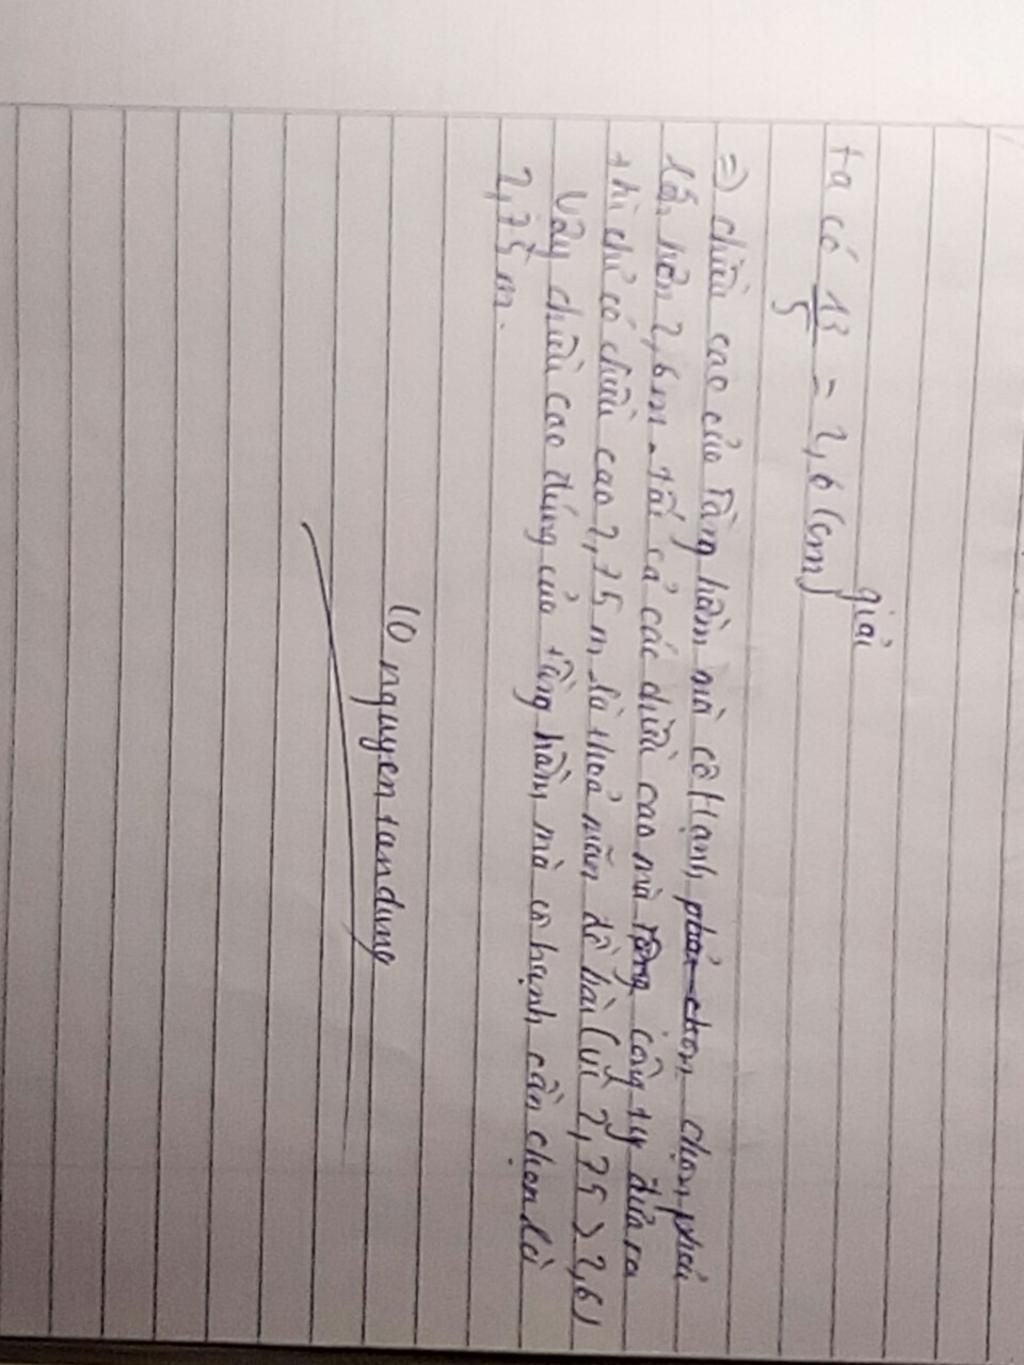 giải
ta có 13/5 = 2,6 (cm)
=) chiều cao của tầng hầm mà cô Hạnh phải chọn chọn phải
lớn hơn 2,6m. tất cả các chiều cao mà tầng công ty đưa ra
thì chỉ có chiều cao 2,75 m là thoả mãn đề bài (vì 2,75 > 2,6)
Vậy chiều cao đúng của tầng hầm mà cô hạnh cần chọn là
2,75 m.
LO nguyen tan dung